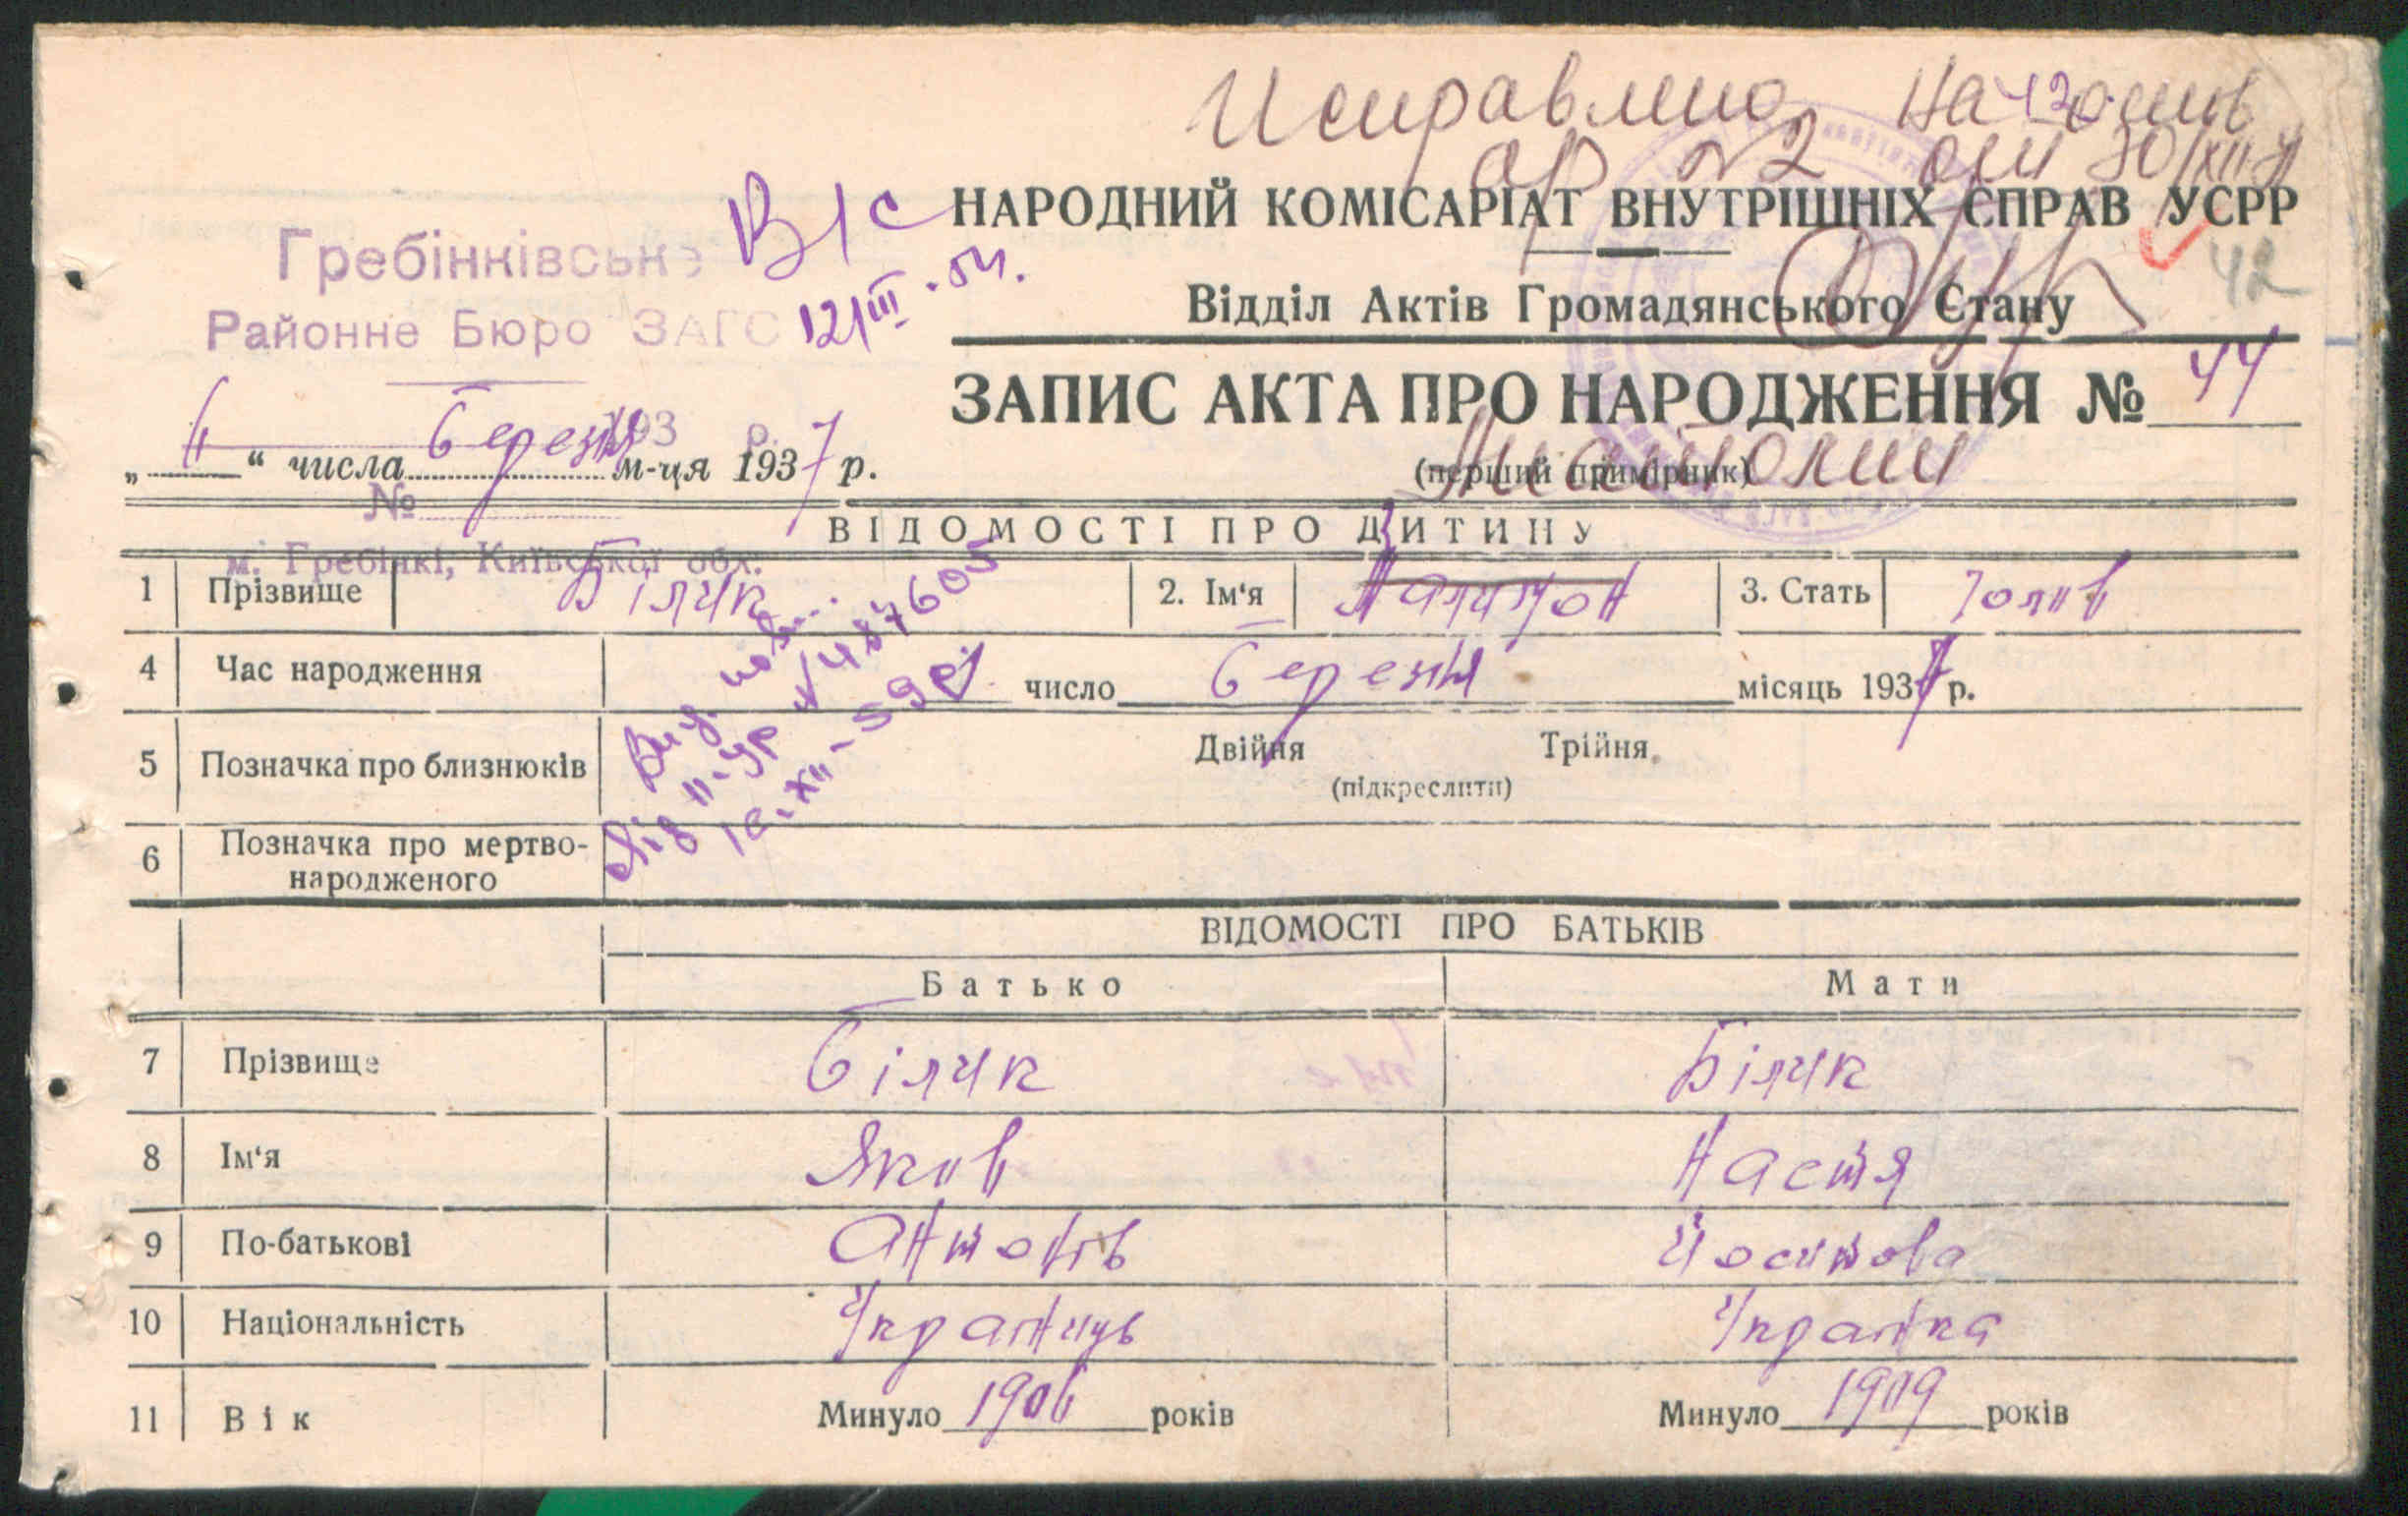 Исправлено На
№2 от 30/XII
В/с
НАРОДНИЙ КОМІСАРІАТ ВНУТРІШНІХ СПРАВ УСРР
Гребінківське
Районне Бюро ЗАГС
12/III-54.
42
Відділ Актів Громадянського Стану
ЗАПИС АКТА ПРО НАРОДЖЕННЯ № 44
193 р.
„ “ числа березня м-ця 1937 р.
(перший примірник)
№
ВІДОМОСТІ ПРО ДИТИНУ
м. Гребінкі, Київської обл.
1 Прізвище Білик 2. Ім‘я 3. Стать
4 Час народження число березня місяць 1937 р.
5 Позначка про близнюків Двійня Трійня.
(підкреслити)
6 Позначка про мертво-
народженого
ВІДОМОСТІ ПРО БАТЬКІВ
Батько Мати
7 Прізвище Білик Білик
8 Ім‘я Яков Настя
9 По-батькові Антонів Йосипова
10 Національність
11 Вік Минуло 1906 років Минуло 1909 років